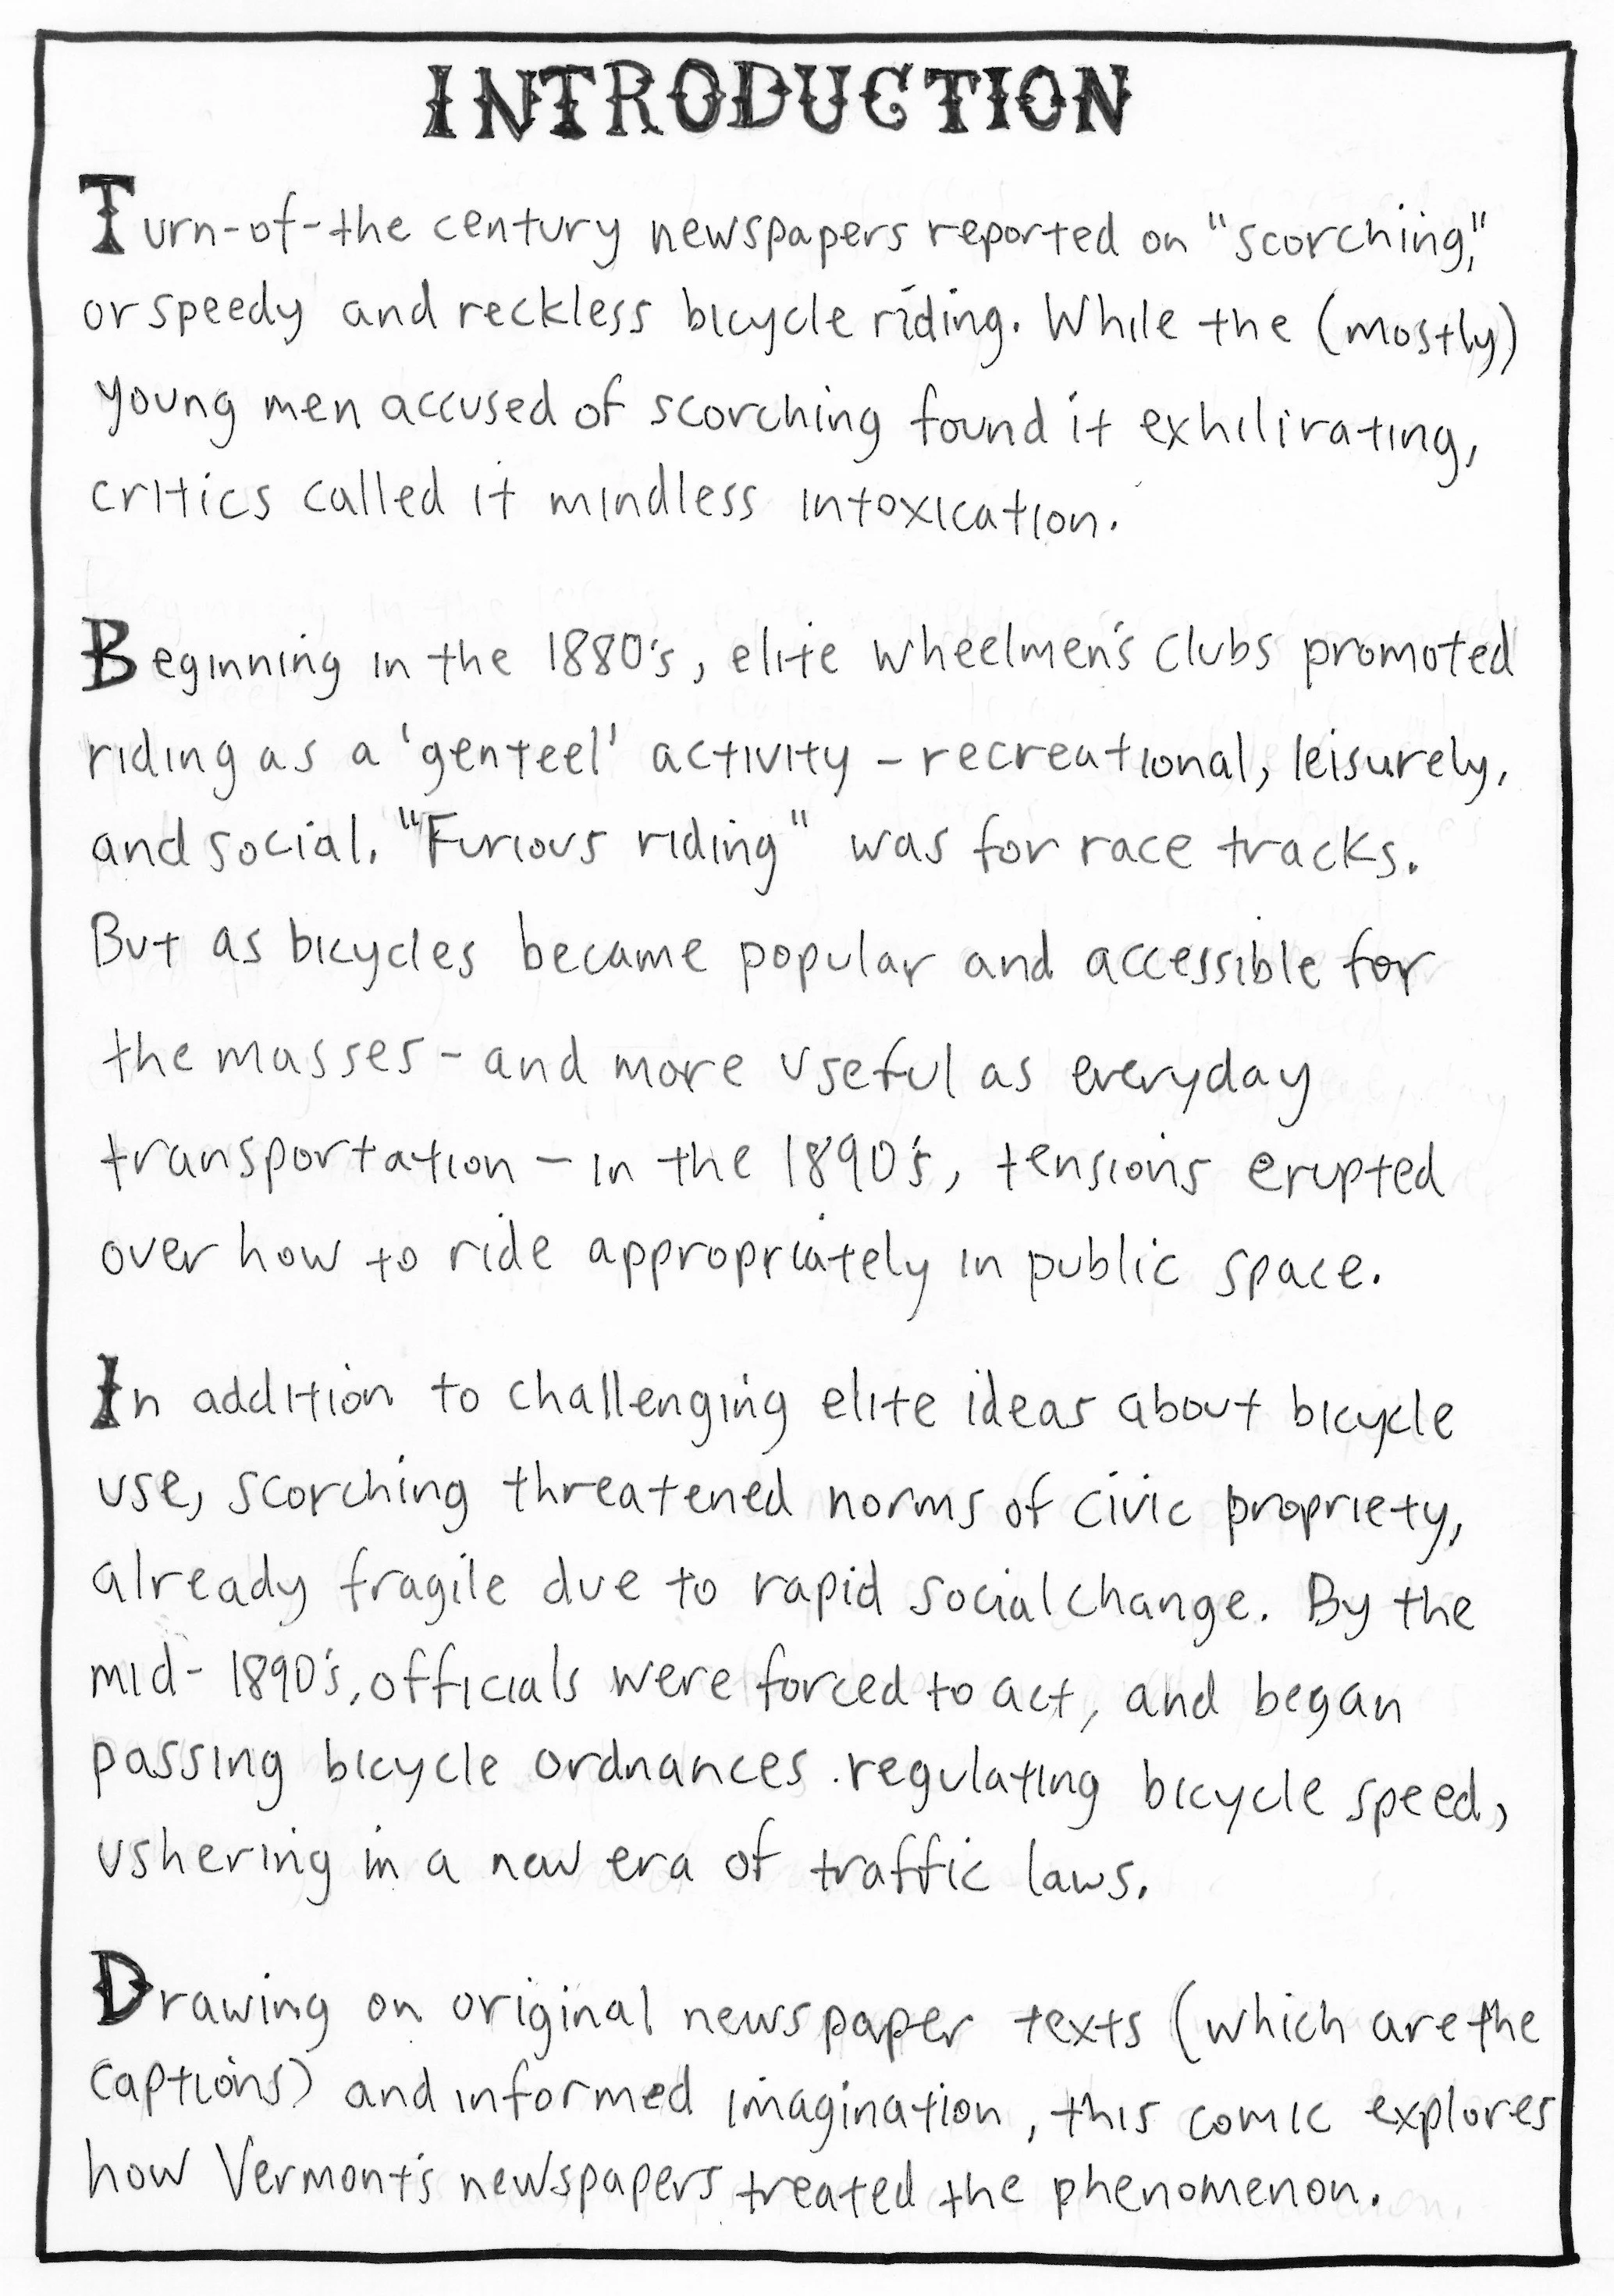 INTRODUCTION
Turn-of-the century newspapers reported on "scorching,"
or speedy and reckless bicycle riding. While the (mostly)
young men accused of scorching found it exhilirating,
critics called it mindless intoxication.
Beginning in the 1880's, elite wheelmen's clubs promoted
riding as a 'genteel' activity - recreational, leisurely,
and social. "Furious riding" was for race tracks.
But as bicycles became popular and accessible for
the masses - and more useful as everyday
transportation - in the 1890's, tensions erupted
over how to ride appropriately in public space.
In addition to challenging elite ideas about bicycle
use, scorching threatened norms of civic propriety,
already fragile due to rapid social change. By the
mid-1890's, officials were forced to act, and began
passing bicycle ordnances regulating bicycle speed,
ushering in a new era of traffic laws.
Drawing on original newspaper texts (which are the
captions) and informed imagination, this comic explores
how Vermont's newspapers treated the phenomenon.